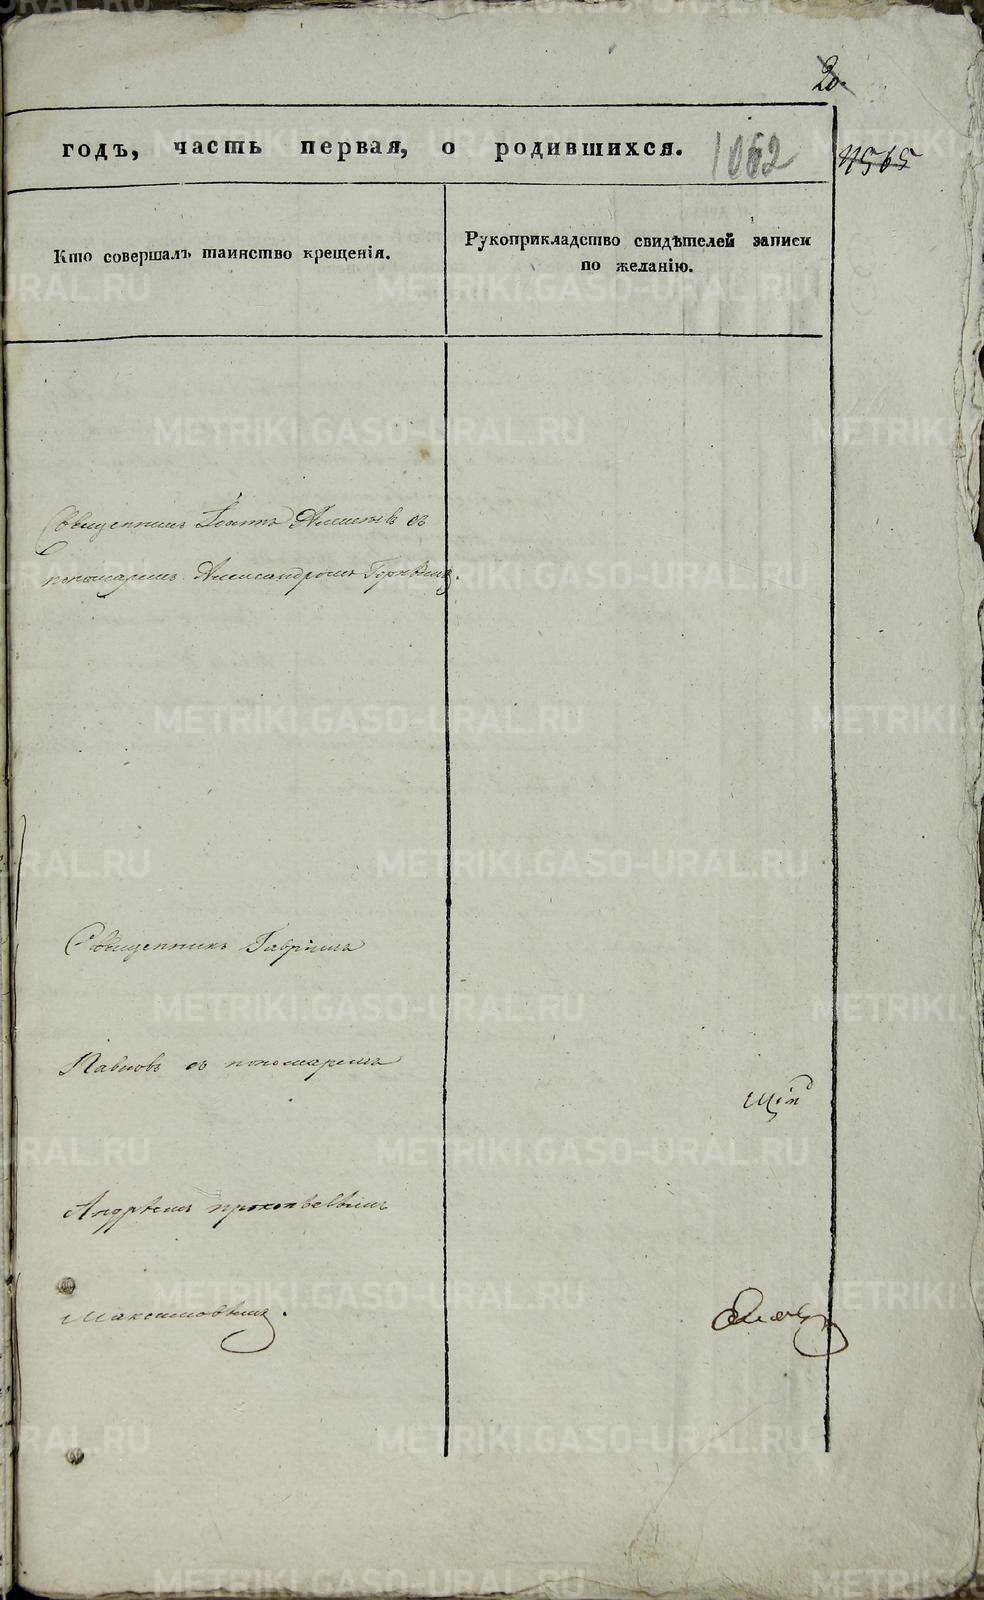 20.
годъ, часть первая, о родившихся. 1062
4565
Кто совершалъ таинство крещенія.
Рукоприкладство свидѣтелей записи
по желанію.
Священникъ Іоаннъ съ
пономаремъ Александромъ
Священникъ Гавріилъ
Павловъ съ пономаремъ
Андреемъ Прокопьевымъ
Максимовымъ.
METRIKI.GASO-URAL.RU